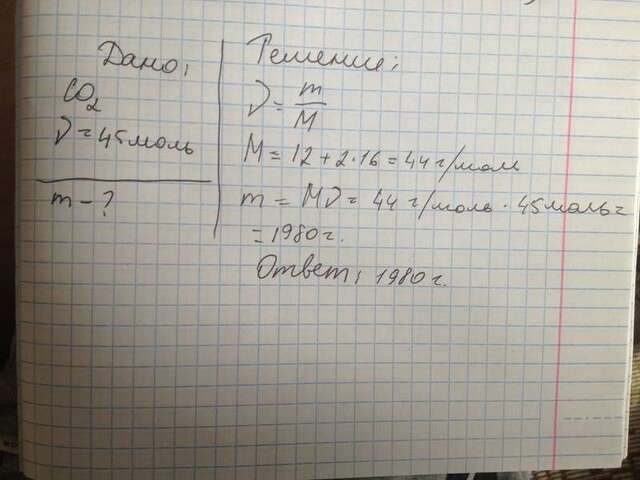 Дано:
CO2
ν = 45 моль
m - ?
Решение:
ν = m/M
M = 12 + 2·16 = 44 г/моль
m = Mν = 44 г/моль · 45 моль =
= 1980 г.
Ответ: 1980 г.